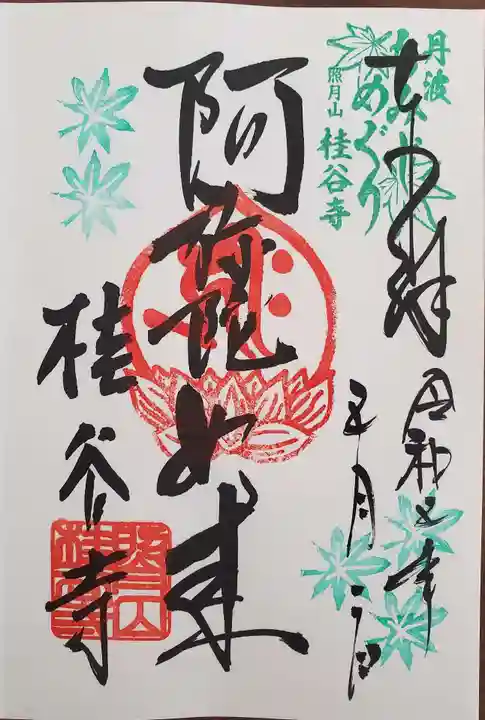 丹波
もみじめぐり
照月山 桂谷寺
奉拝
令和五年
五月二日
阿弥陀如来
桂谷寺